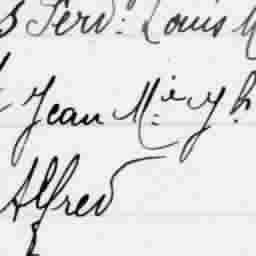 Ferd: Louis
Jean M.ie
Alfred